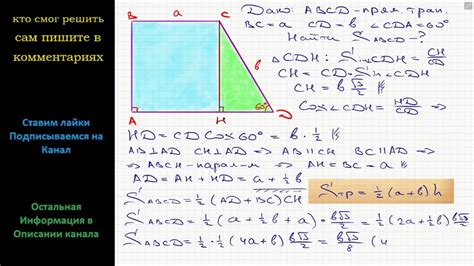 кто смог решить
сам пишите в
комментариях
Ставим лайки
Подписываемся на
Канал
Остальная
Информация в
Описании канала
B a C
b
60°
A H D
Дано: ABCD-прям. трап.
BC=a CD=b ∠CDA=60°
Найти S_ABCD-?
△CDH: Sin∠CDH=CH/CD
CH=CD·Sin∠CDH
CH=b√3/2
Cos∠CDH=HD/CD
HD=CD Cos60°=b·1/2
AB⊥AD CH⊥AD ⇒ AB∥CH BC∥AD ⇒
⇒ ABCH-парал-м ⇒ AH=BC=a
AD=AH+HD=a+1/2b
S_ABCD=1/2(AD+BC)CH
Sтр=1/2(a+b)h
S_ABCD=1/2(a+1/2b+a)·b√3/2=1/2(2a+1/2b)b√3/2
S_ABCD=1/2·1/2(4a+b)b√3/2=b√3/8(4